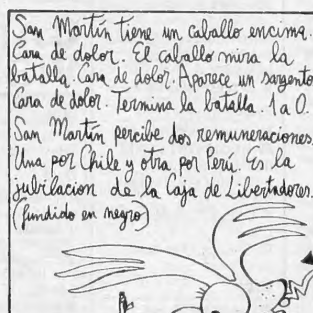 San Martín tiene un caballo encima.
Cara de dolor. El caballo mira la
batalla. Cara de dolor. Aparece un sargento
Cara de dolor. Termina la batalla. 1 a 0.
San Martín percibe dos remuneraciones.
Una por Chile y otra por Perú. Es la
jubilacion de la Caja de Libertadores.
(fundido en negro)